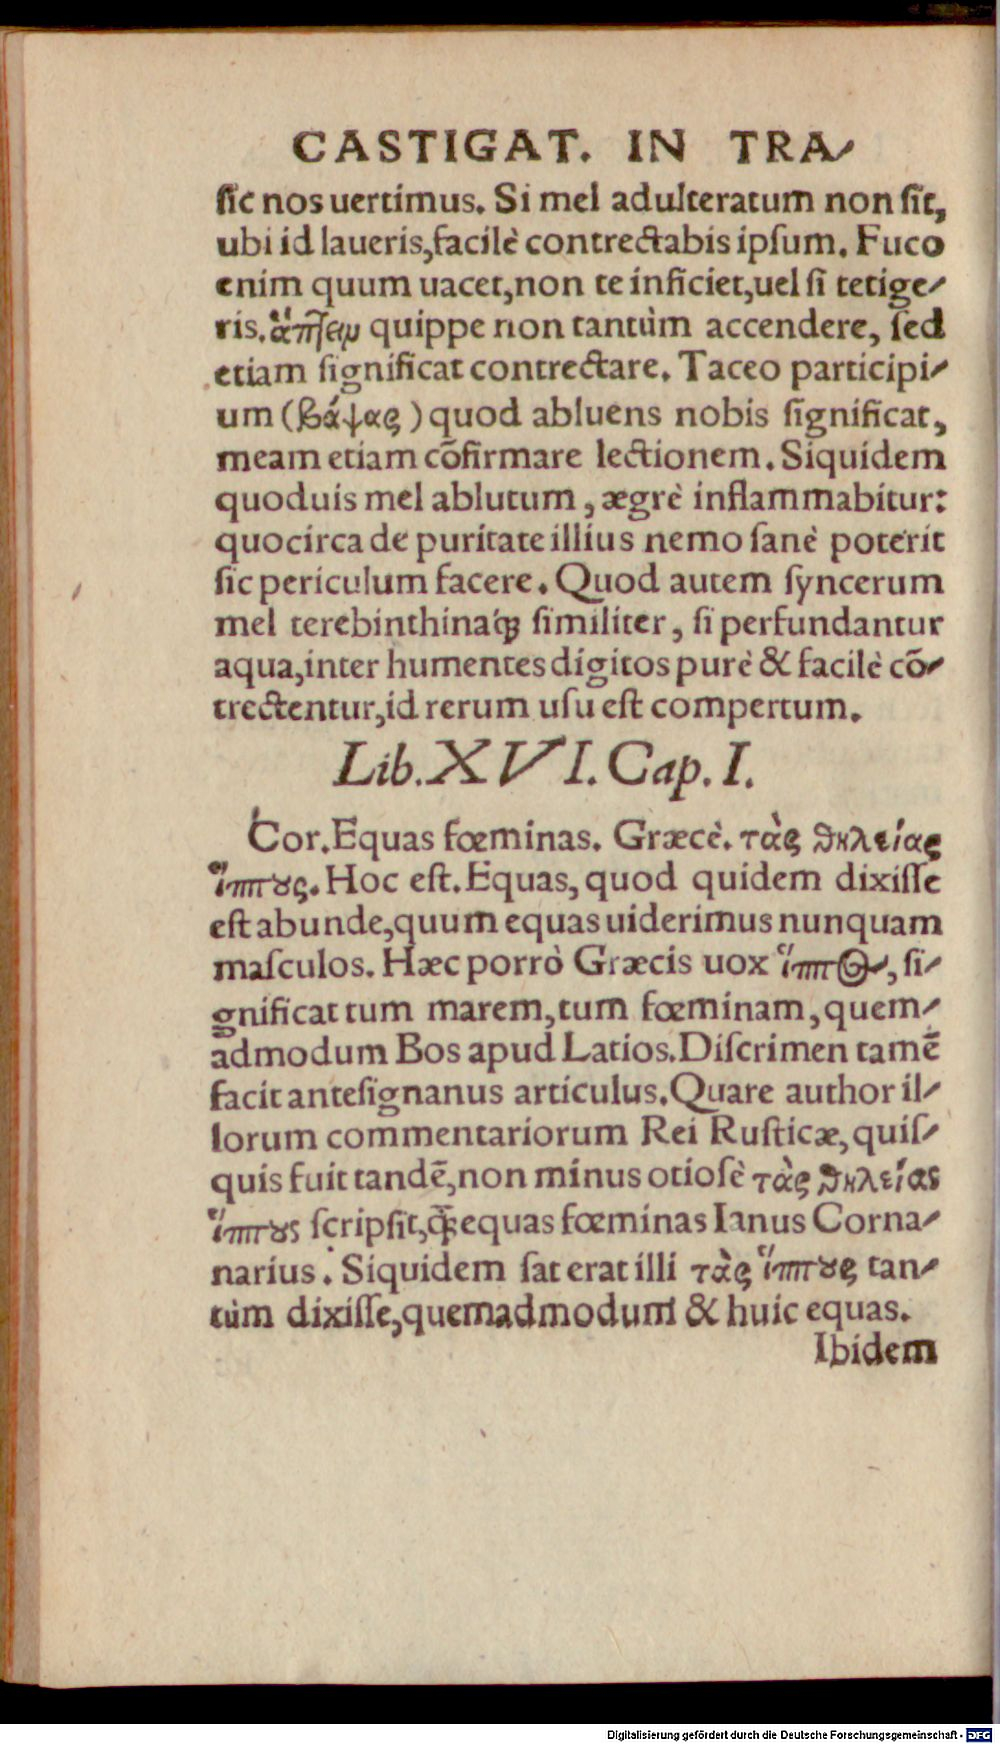 CASTIGAT. IN TRA-
sic nos uertimus. Si mel adulteratum non sit,
ubi id laueris, facilè contrectabis ipsum. Fuco
enim quum uacet, non te inficiet, uel si tetige-
ris. ἅπτειν quippe non tantùm accendere, sed
etiam significat contrectare. Taceo participi-
um (βάψας) quod abluens nobis significat,
meam etiam cõfirmare lectionem. Siquidem
quoduis mel ablutum, ægrè inflammabitur:
quocirca de puritate illius nemo sanè poterit
sic periculum facere. Quod autem syncerum
mel terebinthinaq́; similiter, si perfundantur
aqua, inter humentes digitos purè & facilè cõ-
trectentur, id rerum usu est compertum.
Lib. XVI. Cap. I.
Cor. Equas fœminas. Græcè. τὰς θηλείας
ἵππους. Hoc est. Equas, quod quidem dixisse
est abunde, quum equas uiderimus nunquam
masculos. Hæc porrò Græcis uox ἵππος, si-
gnificat tum marem, tum fœminam, quem-
admodum Bos apud Latios. Discrimen tamẽ
facit antesignanus articulus. Quare author il-
lorum commentariorum Rei Rusticæ, quis-
quis fuit tandẽ, non minus otiosè τὰς θηλείας
ἵππους scripsit, q̃; equas fœminas Ianus Corna-
narius. Siquidem sat erat illi τὰς ἵππους tan-
tùm dixisse, quemadmodum & huic equas.
Ibidem
Digitalisierung gefördert durch die Deutsche Forschungsgemeinschaft - DFG